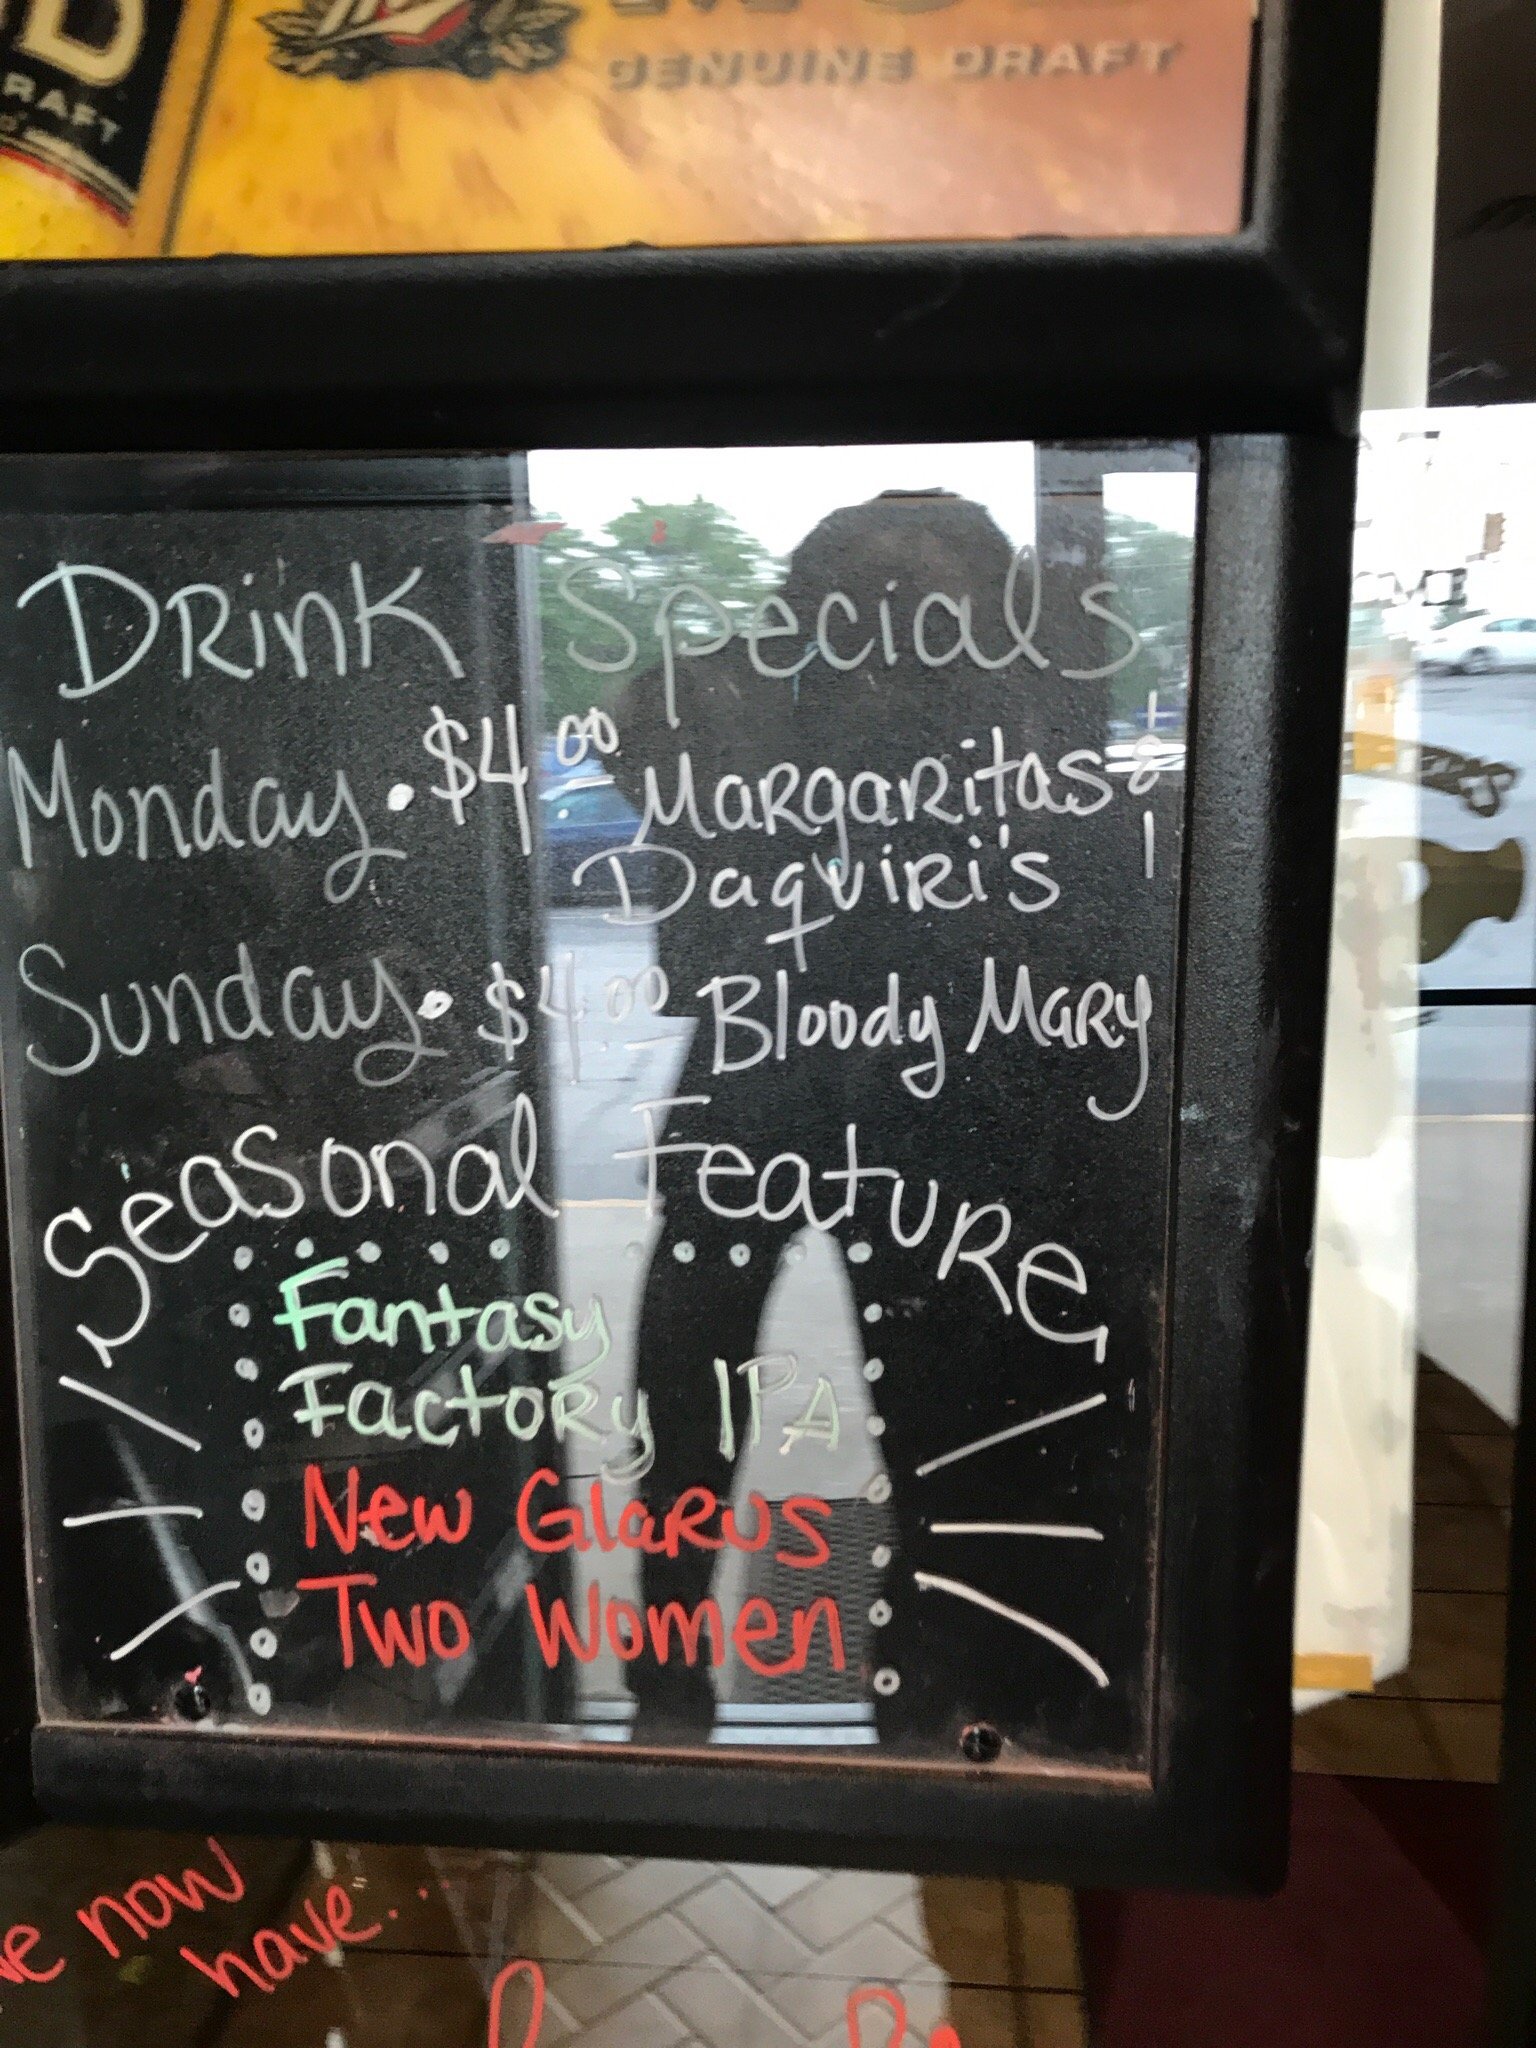 D
RAFT
GENUINE DRAFT
Drink Specials
Monday • $4.00 Margaritas &
Daqviri's
Sunday • $4.00 Bloody Mary
Seasonal Feature
Fantasy
Factory IPA
New Glarus
Two Women
now
have: